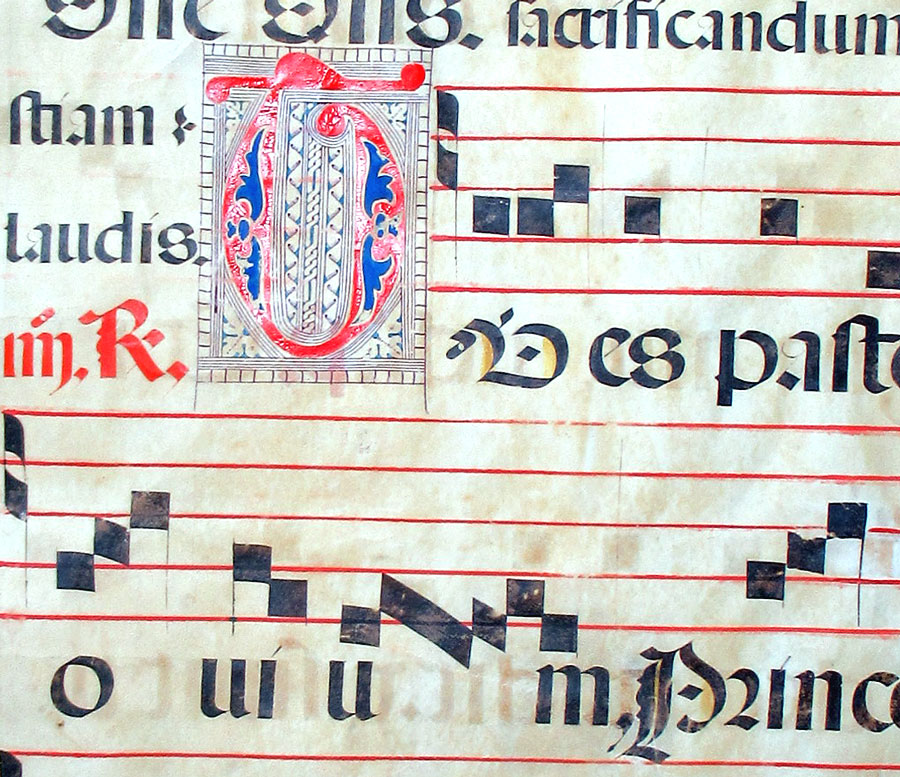 ſacrificandum
ſtiam :
laudis.
iiij. R.
TV es paſto
o ui u m, Prince